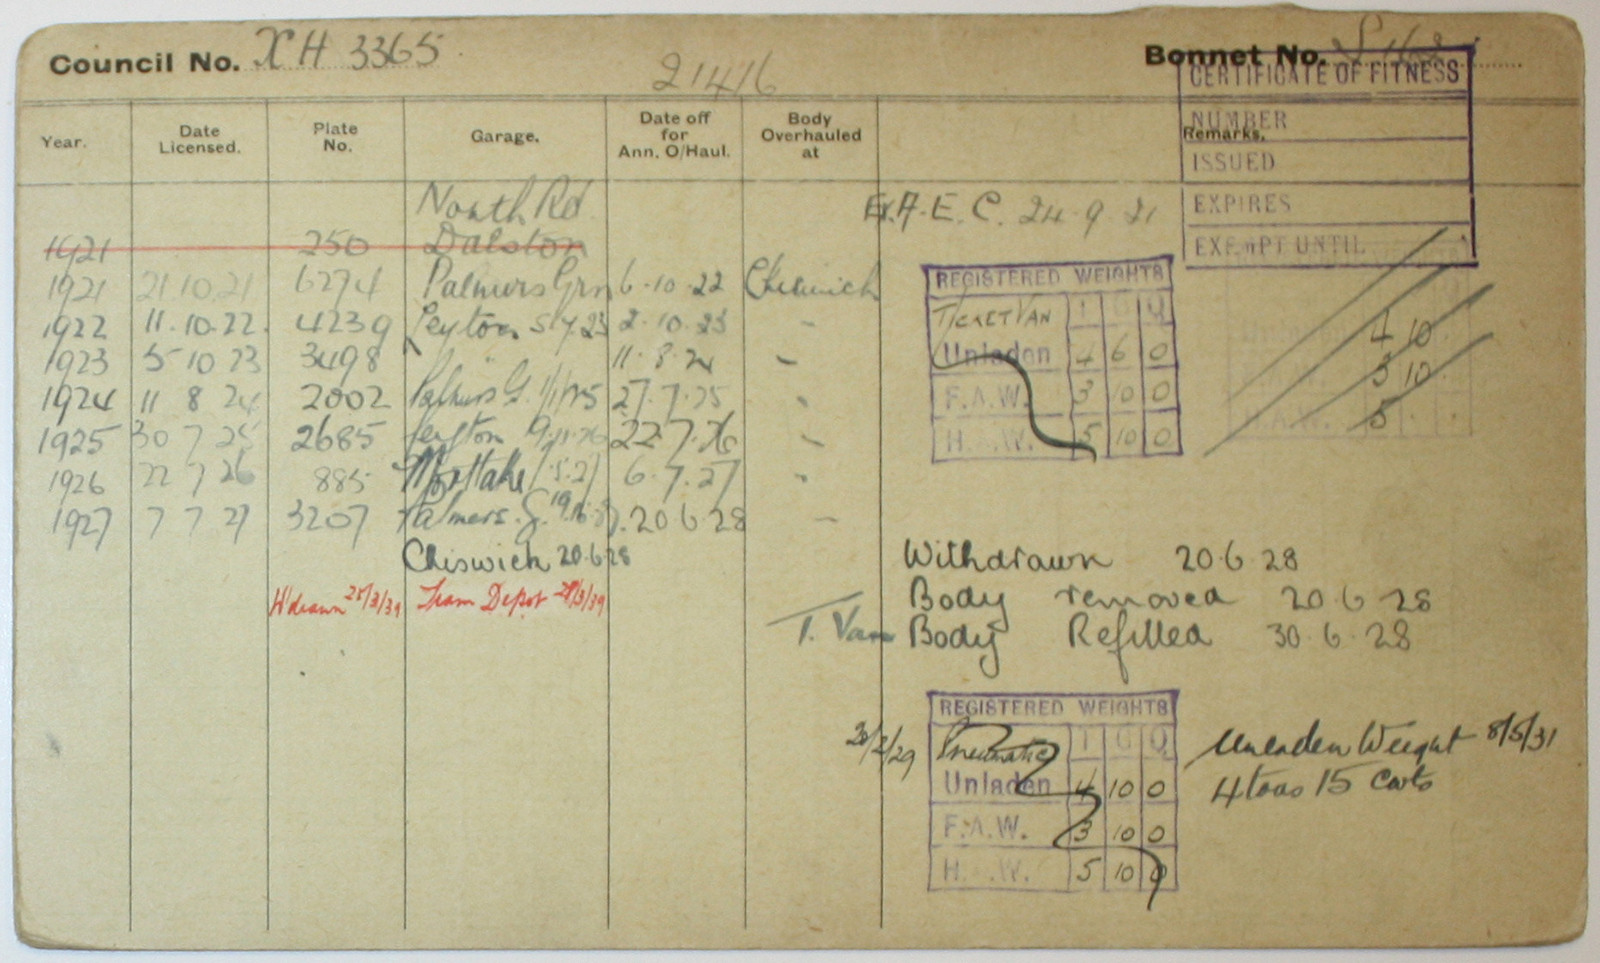 Council No. XH 3365
21416
Bonnet No.
CERTIFICATE OF FITNESS
NUMBER
ISSUED
EXPIRES
EXEMPT UNTIL
Year. Date Licensed. Plate No. Garage. Date off for Ann. O/Haul. Body Overhauled at Remarks.
North Rd
Ex. A. E. C. 24.9.21
1921 250 Dalston
1921 21.10.21 6274 Palmers Grn 6.10.22 Chiswick
1922 11.10.22. 4239 Leyton 5.7.23 2.10.23 -
1923 5 10 23 3498 " 11.8.24 -
1924 11 8 24 2002 Palmers G. 1/1/25 27.7.25 -
1925 30 7 25 2685 Leyton 22.7.26 -
1926 22 7 26 885 Mortlake 1.5.27 6.7.27 -
1927 7 7 27 3207 Palmers. G. 20.6.28 -
Chiswick 20.6.28
W'drawn 25/3/39 Tram Depot
REGISTERED WEIGHTS
TICKET VAN T C Q
Unladen 4 6 0
F.A.W. 3 10 0
H. W. 5 10 0
4 10
3 10
5 . .
Withdrawn 20.6.28
Body removed 20.6.28
T. Van Body Refitted 30.6.28
REGISTERED WEIGHTS
20/2/29 Pneumatic T C Q
Unladen 4 10 0
F.A.W. 3 10 0
H. W. 5 10 0
Unladen Weight 8/5/31
4 tons 15 Cwts